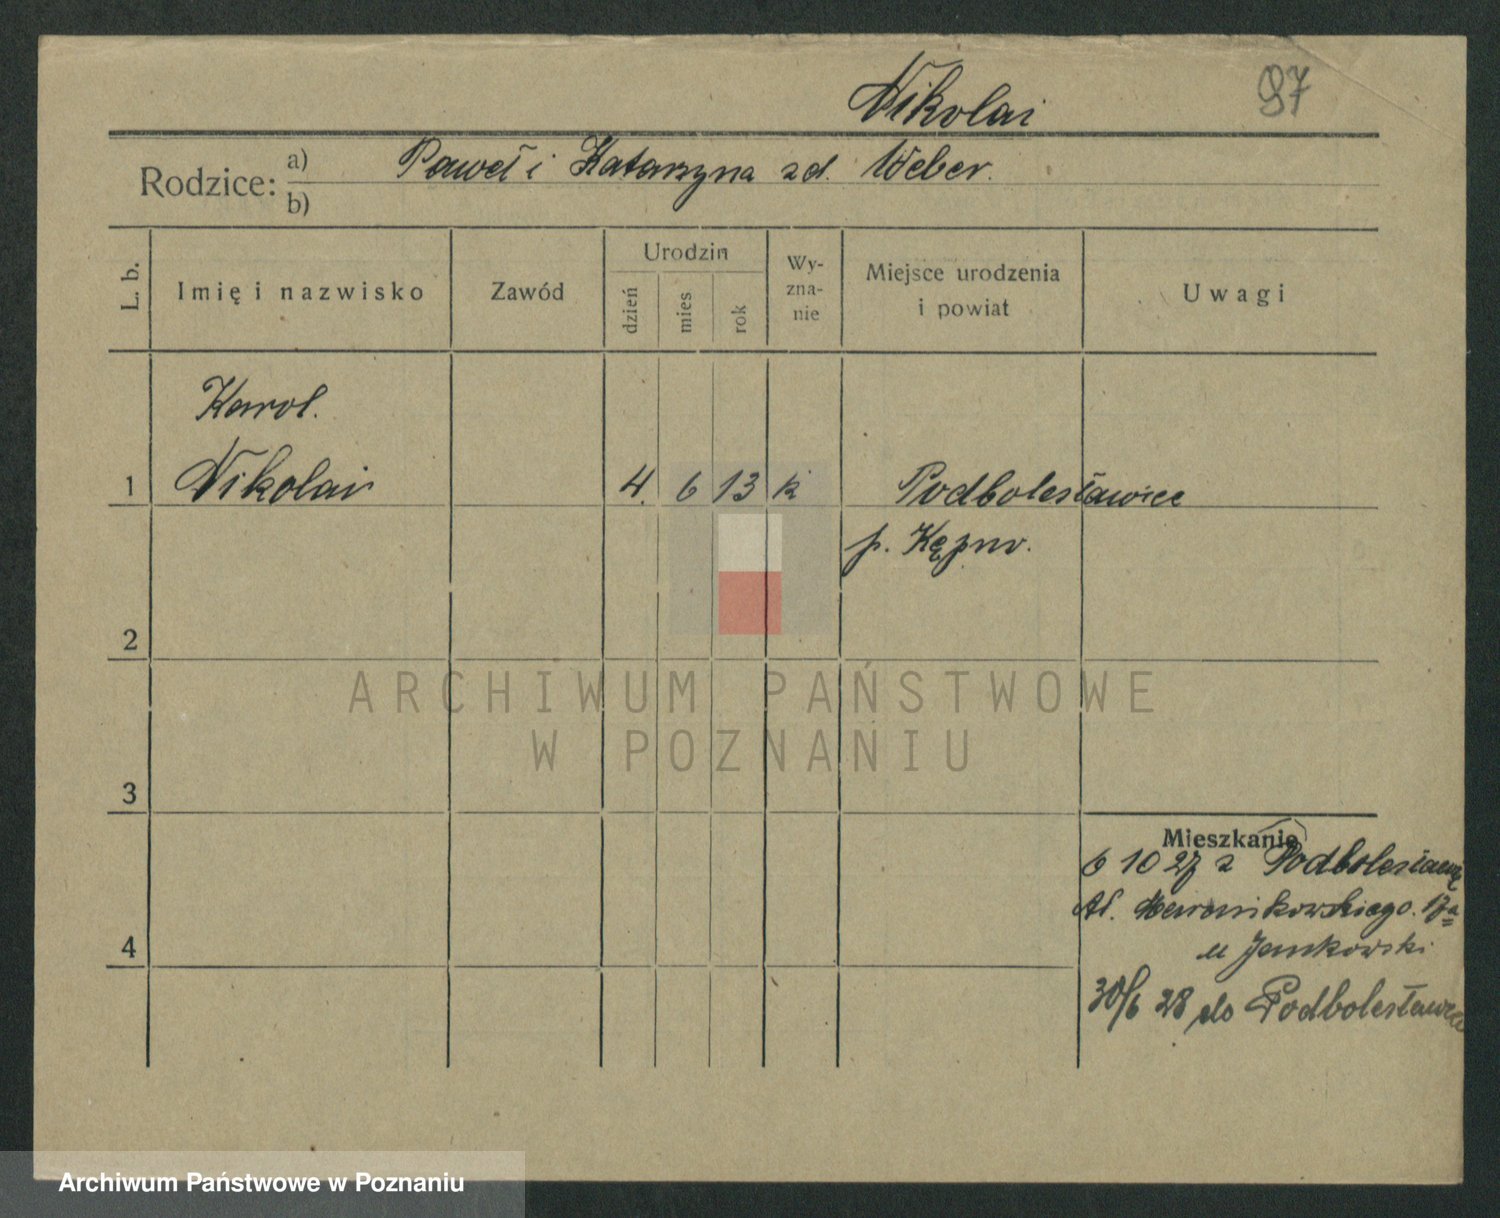 Nikolai
97
Rodzice: a) Paweł i Katarzyna zd. Weber.
b)
L. b.
Imię i nazwisko
Zawód
Urodzin
dzień
mies
rok
Wy-
zna-
nie
Miejsce urodzenia
i powiat
Uwagi
Karol.
1 Nikolai 4. 6 13 k Podbolesławice
p. Kępno.
2
3
4
Mieszkanie
6 10 27 z
Al. 17a
u Jankowski
30/6 28 do Podbolesławca
ARCHIWUM PAŃSTWOWE
W POZNANIU
Archiwum Państwowe w Poznaniu